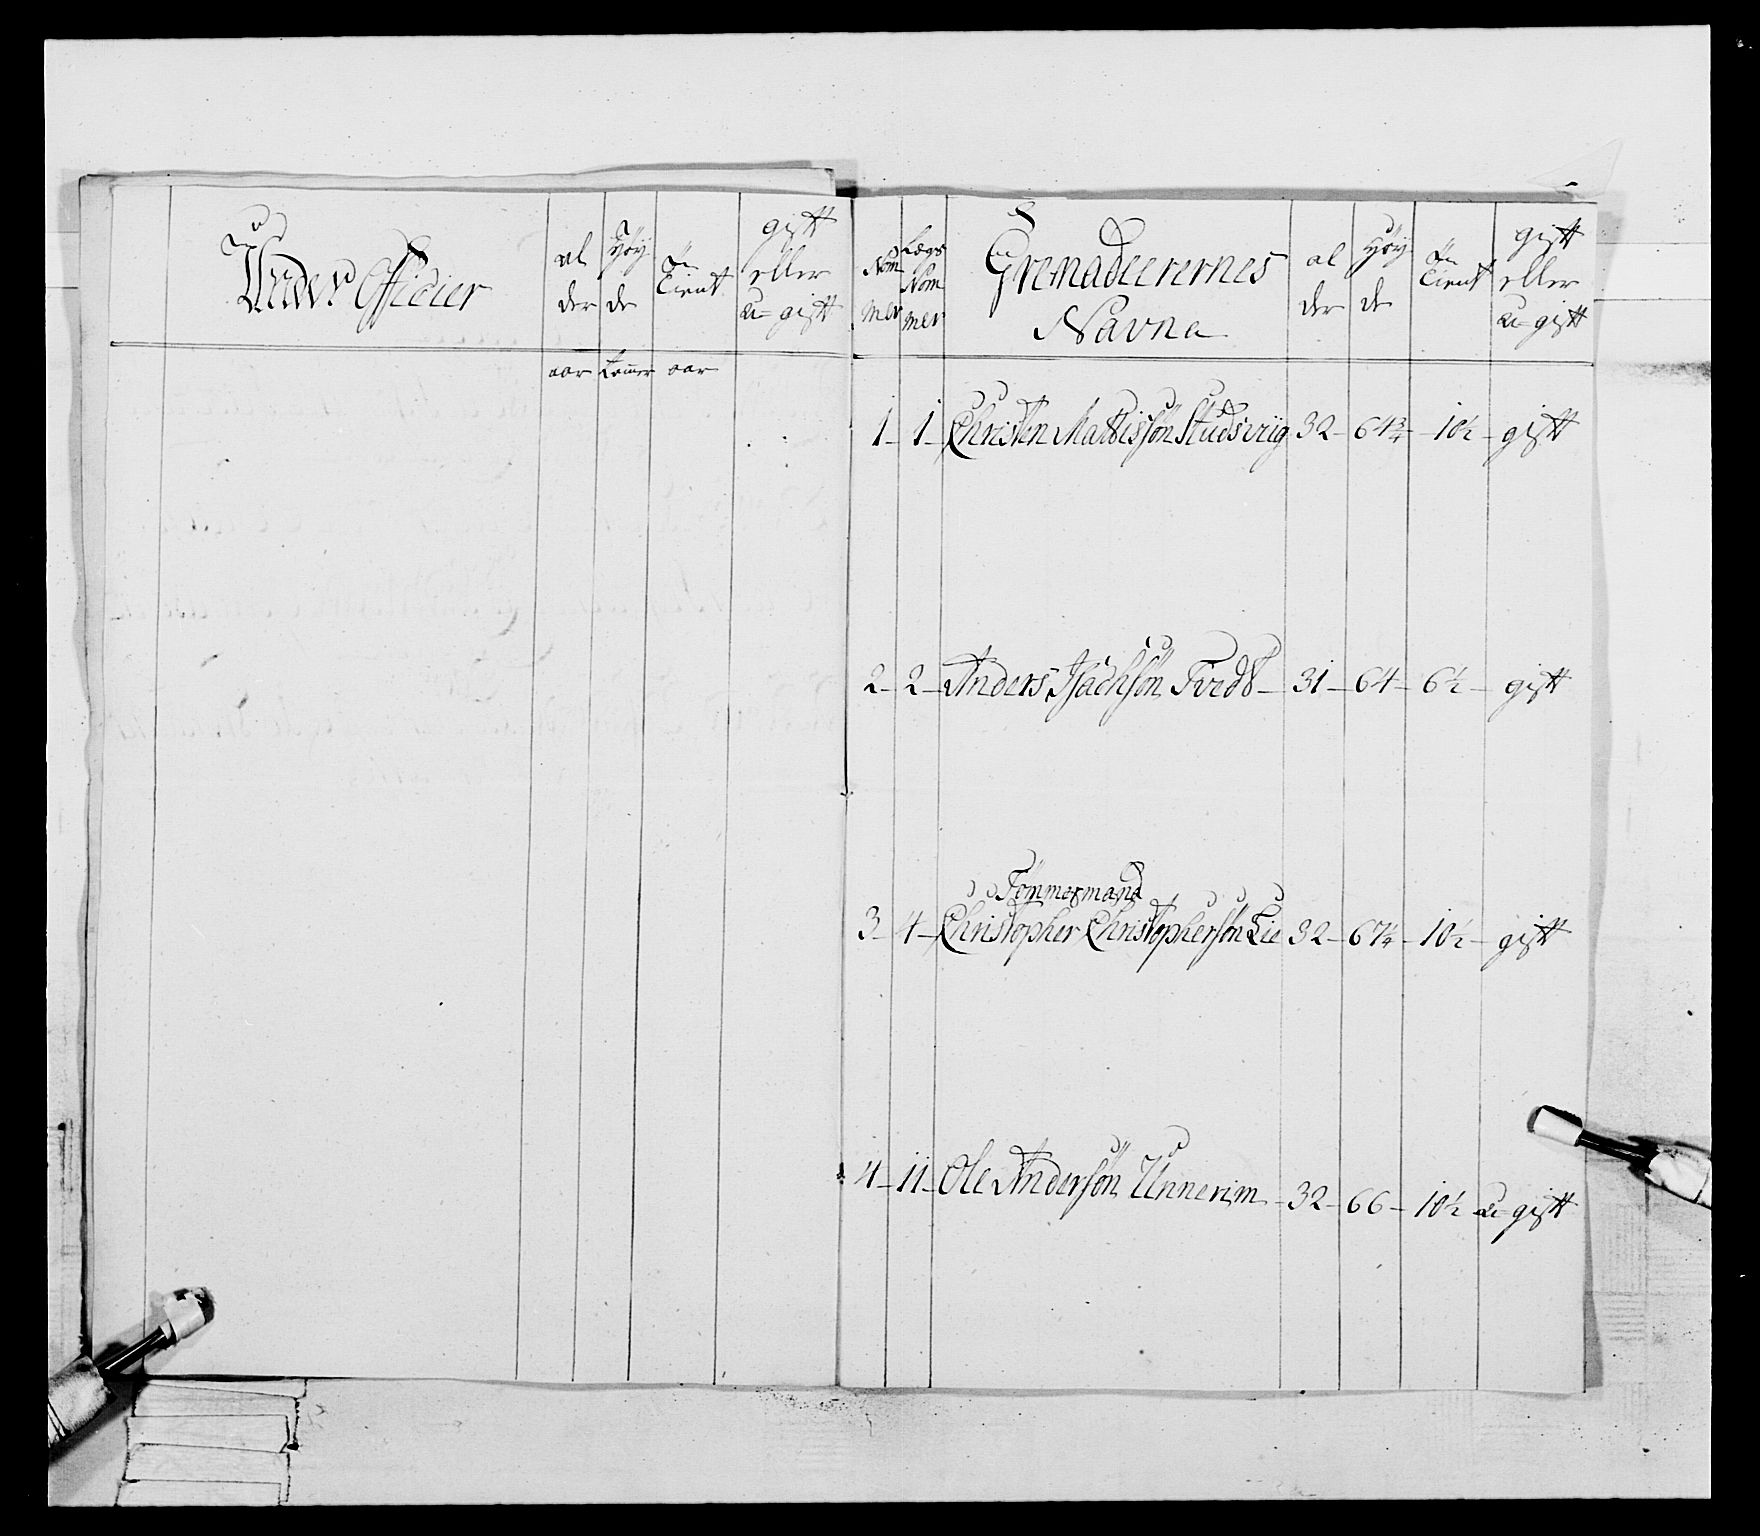 Under Officier
al der
Höy de
Tient
gift eller u= gift
aar tommer aar
Nom mer
Lægs Nom mer
Grenadeerernes Navne
al der
Höy de
Tient
gift eller u= gift
1 – 1 – Christen Mattissön Studsviig 32 – 64¾ – 10½ – gift
2 – 2 – Anders Isachsön Tvedt – 31 – 64 – 6½ – gift
Tömmermand
3 – 4 – Christopher Christophersön Lie 32 – 67¼ – 10½ – gift
4 – 11 – Ole Andersön Unnerim – 32 – 66 – 10½ u= gift